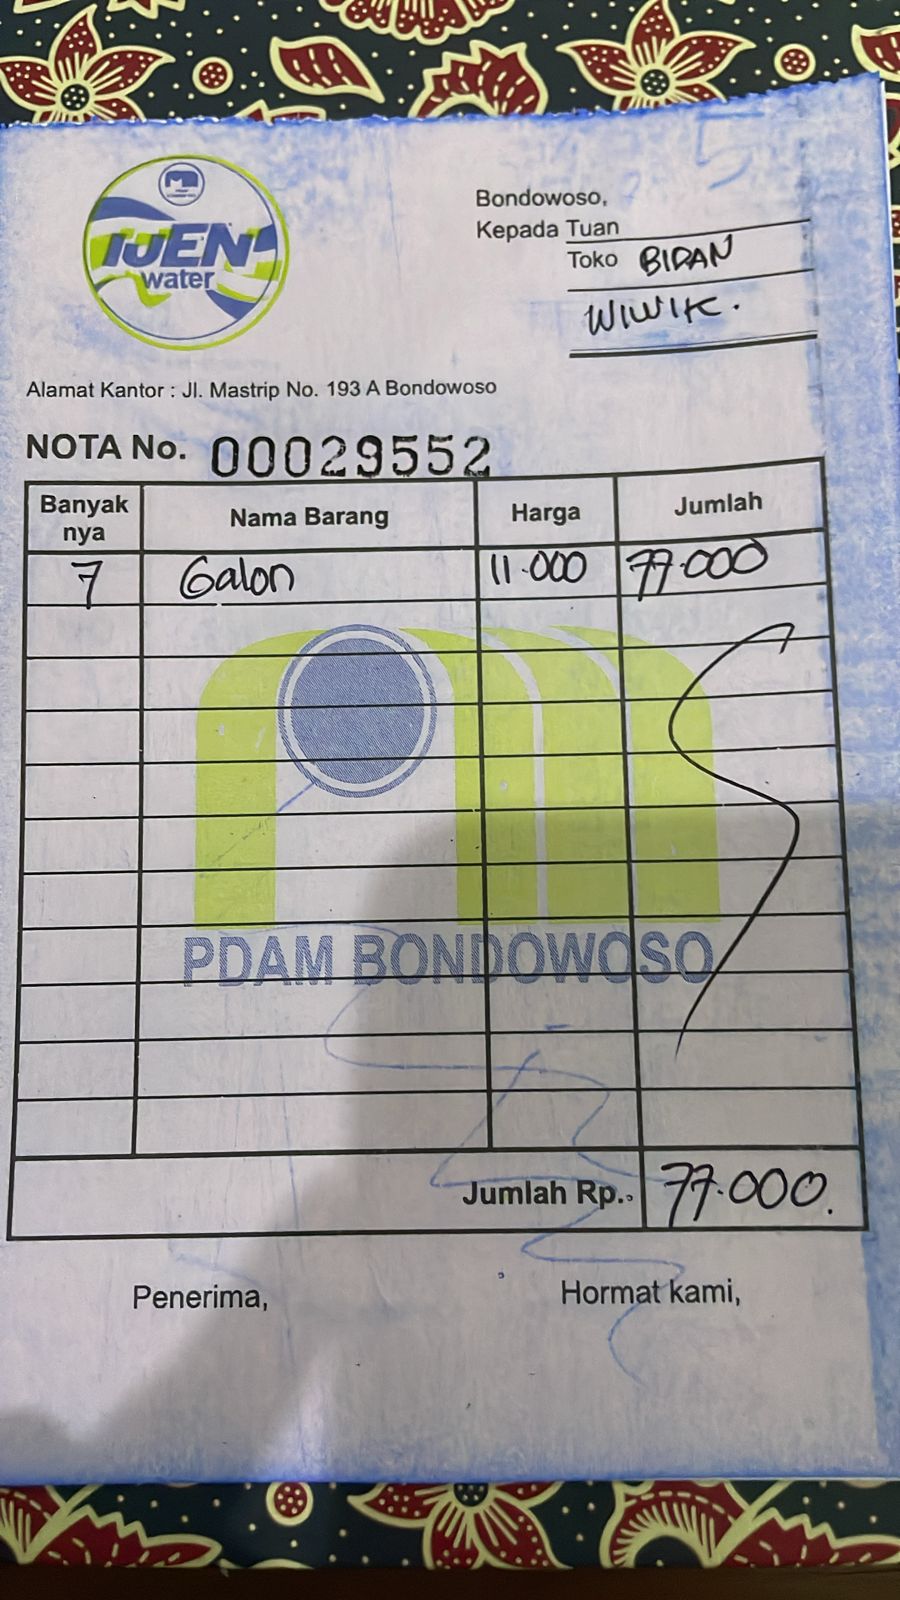 IJEN
water
Bondowoso,
Kepada Tuan
Toko BIDAN
WIWIK.
Alamat Kantor : Jl. Mastrip No. 193 A Bondowoso
NOTA No. 00029552
Banyak nya Nama Barang Harga Jumlah
7 Galon 11.000 77.000
PDAM BONDOWOSO
Jumlah Rp.. 77.000.
Penerima, Hormat kami,